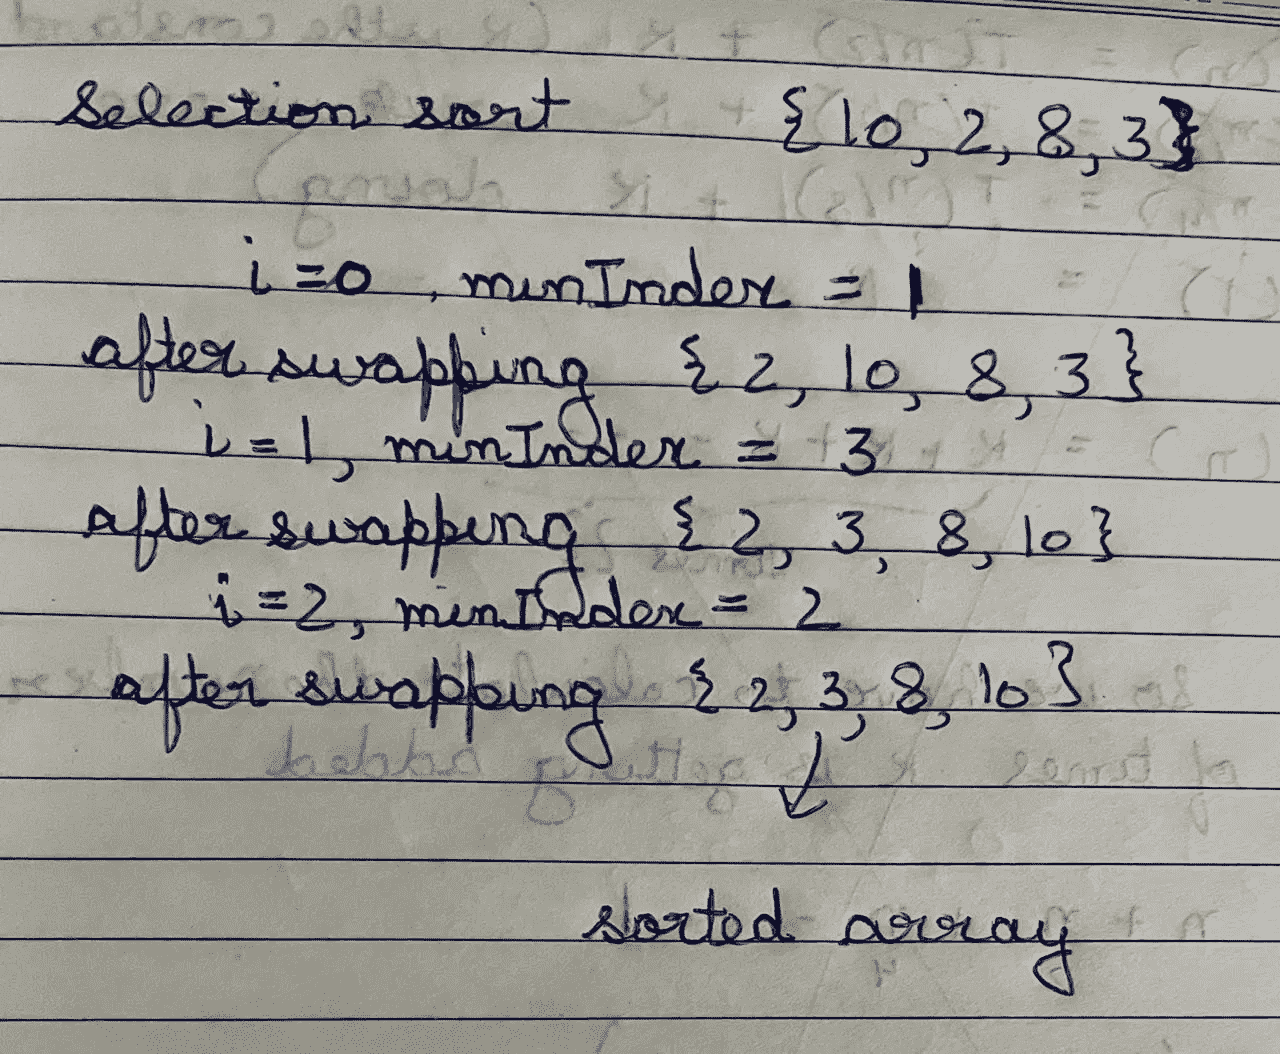 Selection sort {10, 2, 8, 3}
i=0, minIndex = 1
after swapping {2, 10, 8, 3}
i=1, minIndex = 3
after swapping {2, 3, 8, 10}
i=2, minIndex = 2
after swapping {2, 3, 8, 10}
sorted array